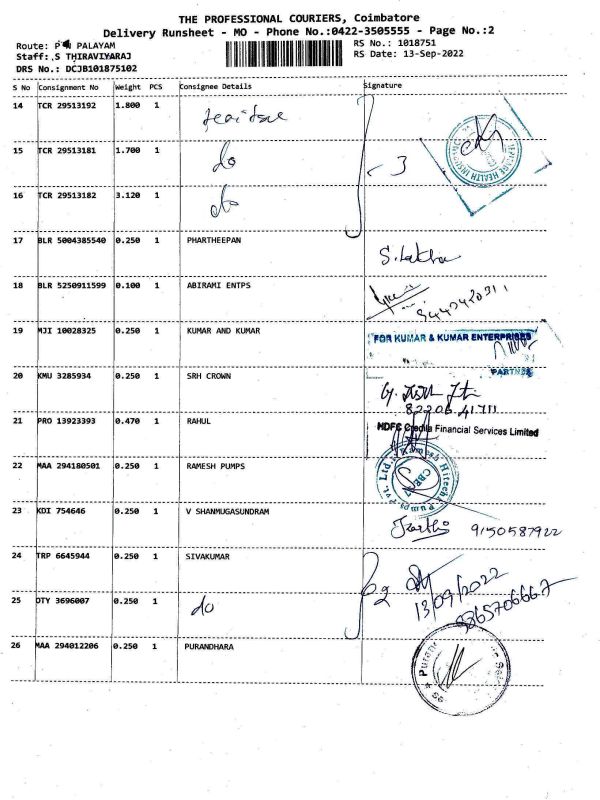 THE PROFESSIONAL COURIERS, Coimbatore
Delivery Runsheet - MO - Phone No.:0422-3505555 - Page No.:2
Route: P PALAYAM
RS No.: 1018751
Staff: S THIRAVIYARAJ
RS Date: 13-Sep-2022
DRS No.: DCJB101875102
S No Consignment No Weight PCS Consignee Details Signature
14 TCR 29513192 1.800 1
15 TCR 29513181 1.700 1 do
3
16 TCR 29513182 3.120 1 do
17 BLR 5004385540 0.250 1 PHARTHEEPAN
S. Lakha
18 BLR 5250911599 0.100 1 ABIRAMI ENTPS
19 MJI 10028325 0.250 1 KUMAR AND KUMAR
FOR KUMAR & KUMAR ENTERPRISES
PARTNER
20 KMU 3285934 0.250 1 SRH CROWN
82206 41711
21 PRO 13923393 0.470 1 RAHUL
HDFC Credila Financial Services Limited
22 MAA 294180501 0.250 1 RAMESH PUMPS
23 KDI 754646 0.250 1 V SHANMUGASUNDRAM
Karthi 9150587922
24 TRP 6645944 0.250 1 SIVAKUMAR
2
13/09/2022
25 OTY 3696007 0.250 1 do
9865706667
26 MAA 294012206 0.250 1 PURANDHARA